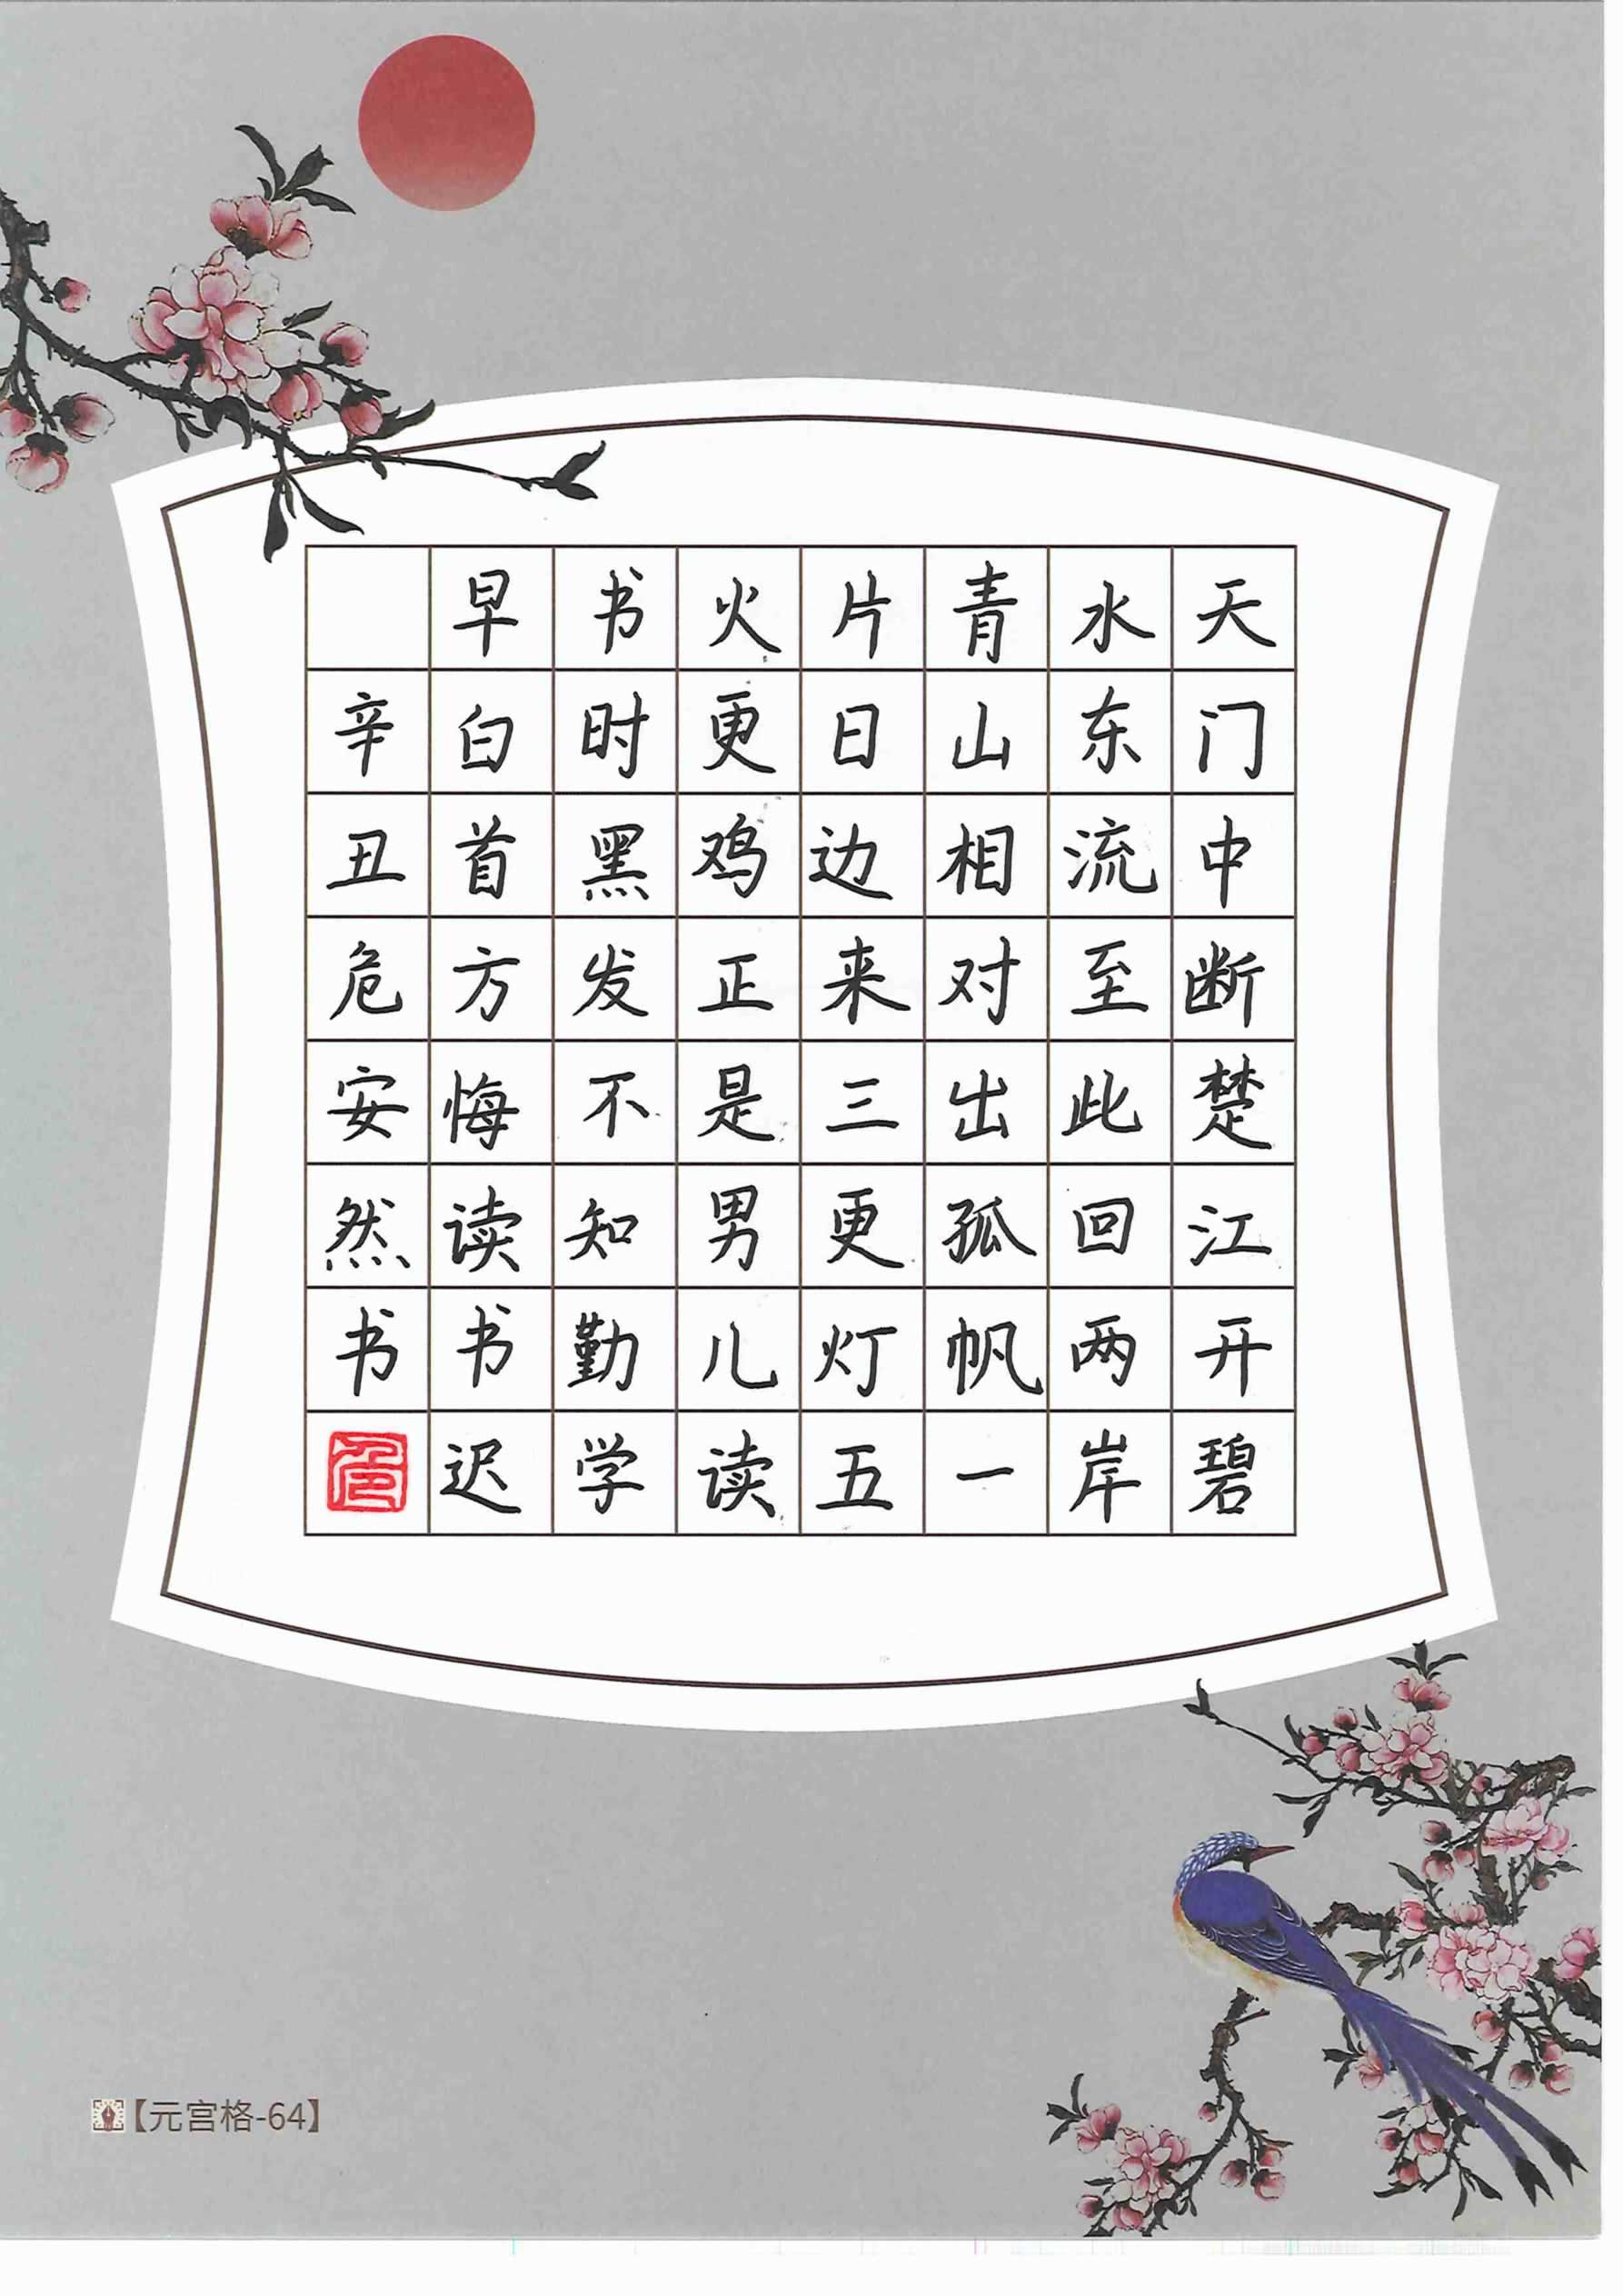 天门中断楚江开碧
水东流至此回两岸
青山相对出孤帆一
片日边来三更灯五
火更鸡正是男儿读
书时黑发不知勤学
早白首方悔读书迟
辛丑危安然书
【元宫格-64】